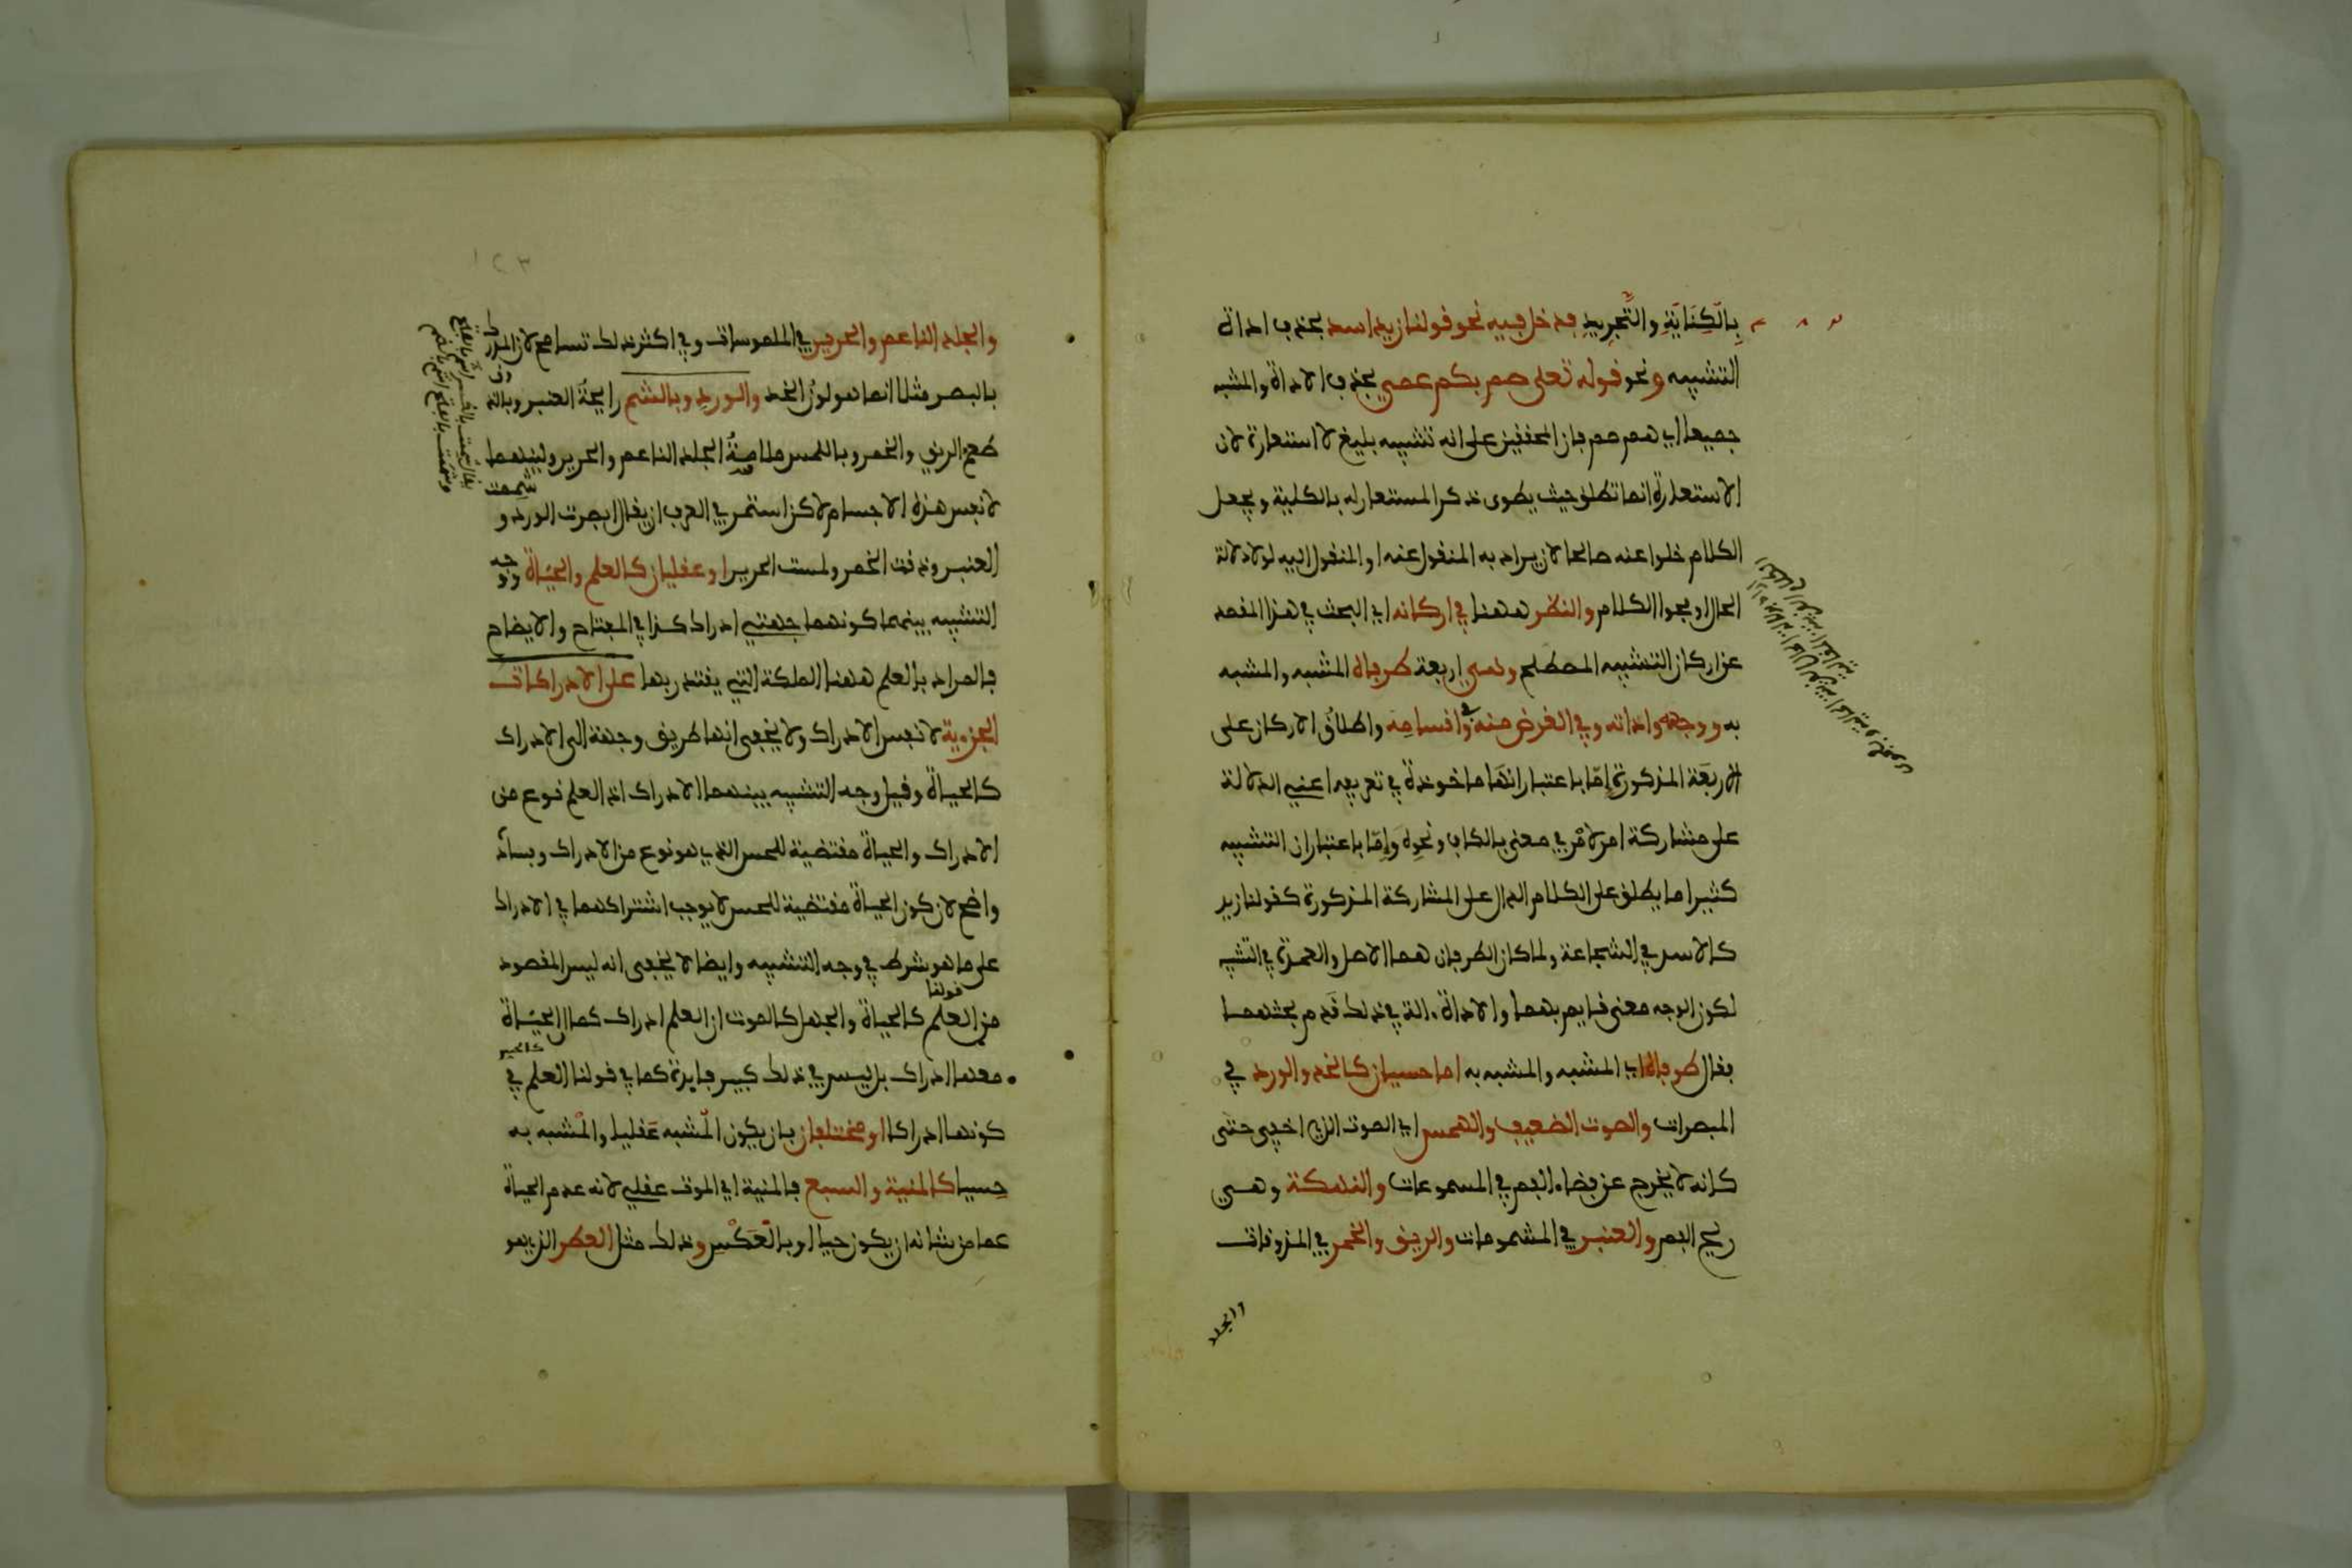 بالكناية والتجريد فدخل فيه نحو قولنا زيد اسد بحذف اداة
التشبيه ونحو قوله تعلى صم بكم عمي بحذف الاداة والمشبه
جميعا اي هم صم فان المحققين على انه تشبيه بليغ لا استعارة لان
الاستعارة انما تطلق حيث يطوى ذكر المستعار له بالكلية ويجعل
الكلام خلوا عنه صالحا لان يراد به المنقول عنه او المنقول اليه لولا دلالة
الحال او فحوا الكلام والنظر ههنا في اركانه اي البحث في هذا المقصد
عن اركان التشبيه المصطلح وهي اربعة طرفاه المشبه والمشبه
به ووجهه واداته وفي الغرض منه وفي اقسامه واطلاق الاركان على
الاربعة المذكورة إما باعتبار انها ماخوذة في تعريفه اعني الدلالة
على مشاركة امر لامر في معنى بالكاف ونحوه وإما باعتبار ان التشبيه
كثيرا ما يطلق على الكلام الدال على المشاركة المذكورة كقولنا زيد
كالاسد في الشجاعة ولما كان الطرفان هما الاصل والعمدة في التشبيه
لكون الوجه معنى قايم بهما والاداة ءالة في ذلك قدم بحثهما
فقال طرفاه اي المشبه والمشبه به اما حسيان كالخد والورد في
المبصرات والصوت الضعيف والهمس اي الصوت الذي اخفي حتى
كانه لا يخرج عن فضاء الفم في المسموعات والنكهة وهي
ريح الفم والعنبر في المشمومات والريق والخمر في المذوقات
والجلد
١٢٣
والجلد الناعم والحرير في الملموسات وفي اكثر ذلك تسامح لان المدرك
بالبصر مثلا انما هو لون الخد والورد وبالشم رايحة العنبر وبالذوق
طعم الريق والخمر وباللمس ملاسة الجلد الناعم والحرير ولينهما
لا نفس هذه الاجسام لاكن استمر في العرف ان يقال ابصرت الورد وشممت
العنبر وذقت الخمر ولمست الحرير او عقليان كالعلم والحياة ووجه
التشبيه بينهما كونهما جهتي ادراك كذا في المفتاح والايضاح
فالمراد بالعلم ههنا الملكة التي يقتدر بها على الادراكات
الجزءية لا نفس الادراك ولا يخفى انها طريق وجهة الى الادراك
كالحياة وقيل وجه التشبيه بينهما الادراك اذ العلم نوع من
الادراك والحياة مقتضية للحس الذي هو نوع من الادراك وفساده
واضح لان كون الحياة مقتضية للحس لا يوجب اشتراكهما في الادراك
على ما هو شرط في وجه التشبيه وايضا لا يخفى انه ليس المقصود
من قولنا العلم كالحياة والجهل كالموت ان العلم ادراك كما ان الحياة
معها ادراك بل ليس في ذلك كبير فايدة كما في قولنا العلم كالحس في
كونهما ادراكا او مختلفان بان يكون المشبه عقليا والمشبه به
حسيا كالمنية والسبع فالمنية اي الموت عقلي لانه عدم الحياة
عما من شانه ان يكون حيا او بالعكس وذلك مثل العطر الذي هو